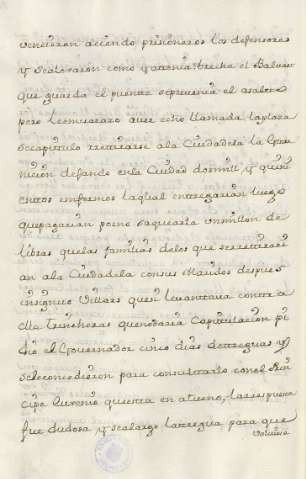 vencieron aciendo prisioneros los defensores
y se alojaron como ya tenia brecha el Baluar
que guarda el puente se prevenia el asalto
pero le embiaron aver echo llamada la plaza
se capitulo retirarse ala Ciudadela la Guar
nición dejando en la Ciudad dosmill, y quini
entos enfermos la qual entregarian luego
que pagarian por no saquearla un millon de
libras que las familias delos que se retirasen
an ala Ciudadela con sus Maridos despues
insignuo Villars que si levantava contra
ella trincheras quemaria Capitulacion pi
dio el Governador cinco dias de treguas y
se le concedieron para consultarlo con el Prin
cipe Eugenio que estava en la respuesta
fue dudosa y se alargo la tregua para que
volviese